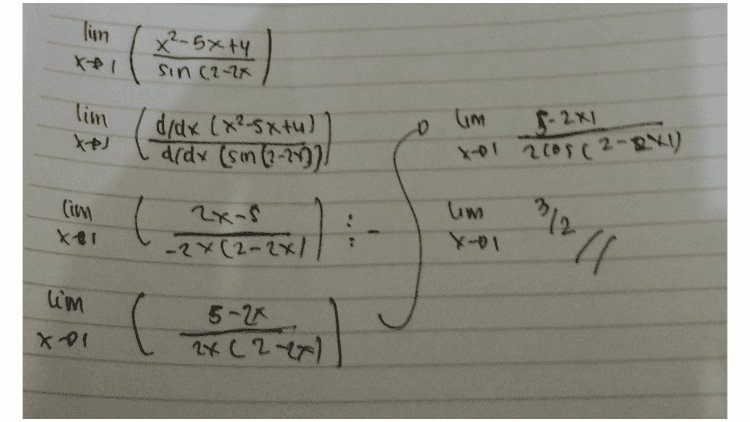 lim x→1 ( x²-5x+4 / sin (2-2x )
lim x→1 ( d/dx (x²-5x+4) / d/dx (sin (2-2x)) )
lim x→1 ( 2x-5 / -2x(2-2x) ) : -
lim x→1 ( 5-2x / 2x (2-2x) )
lim x→1 5-2x1 / 2cos(2-2x1)
lim x→1 3/2 //